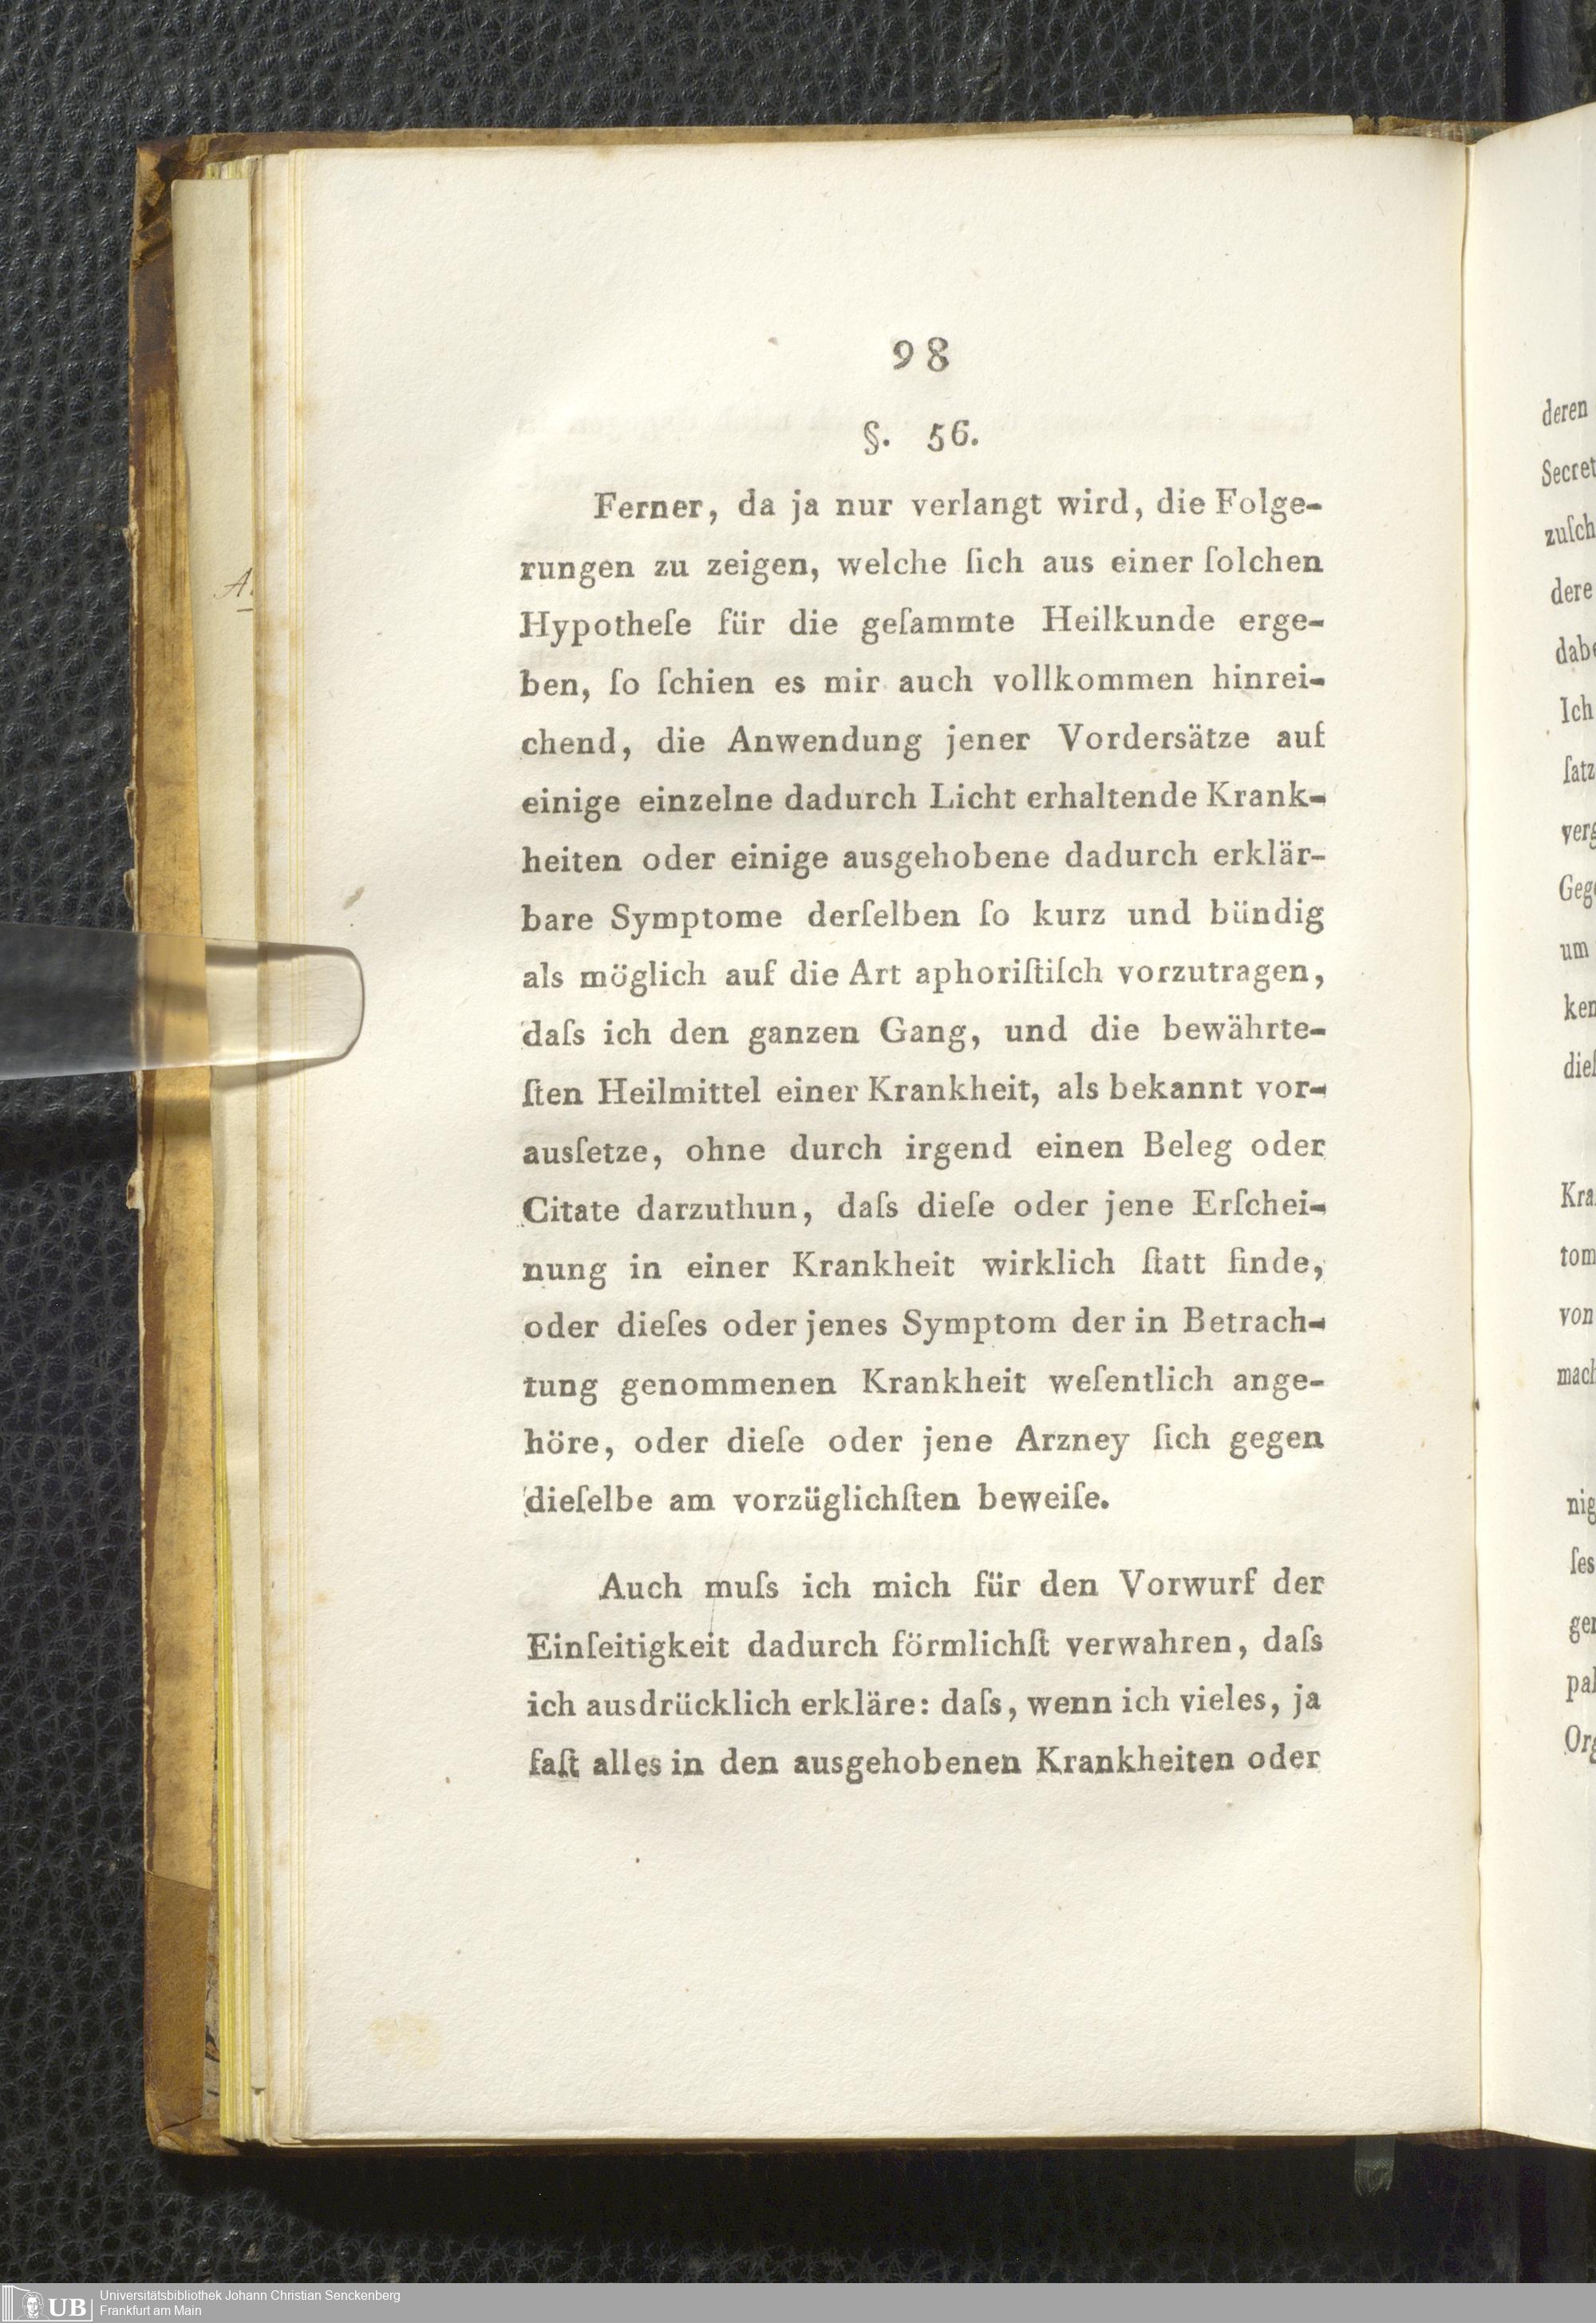 98
§. 56.
Ferner, da ja nur verlangt wird, die Folge-
rungen zu zeigen, welche ſich aus einer ſolchen
Hypotheſe für die geſammte Heilkunde erge-
ben, ſo ſchien es mir auch vollkommen hinrei-
chend, die Anwendung jener Vordersätze auf
einige einzelne dadurch Licht erhaltende Krank-
heiten oder einige ausgehobene dadurch erklär-
bare Symptome derſelben ſo kurz und bündig
als möglich auf die Art aphoriſtiſch vorzutragen,
daſs ich den ganzen Gang, und die bewährte-
ſten Heilmittel einer Krankheit, als bekannt vor-
ausſetze, ohne durch irgend einen Beleg oder
Citate darzuthun, daſs dieſe oder jene Erſchei-
nung in einer Krankheit wirklich ſtatt finde,
oder dieſes oder jenes Symptom der in Betrach-
tung genommenen Krankheit weſentlich ange-
höre, oder dieſe oder jene Arzney ſich gegen
dieſelbe am vorzüglichſten beweiſe.
Auch muſs ich mich für den Vorwurf der
Einſeitigkeit dadurch förmlichſt verwahren, daſs
ich ausdrücklich erkläre: daſs, wenn ich vieles, ja
faſt alles in den ausgehobenen Krankheiten oder
deren
Secret
zuſch
dere
dabe
Ich
ſatz
verg
Gege
um
ken
dieſ
Kra
tom
von
mach
nig
ſes
gen
pal
Org
UB
Universitätsbibliothek Johann Christian Senckenberg
Frankfurt am Main